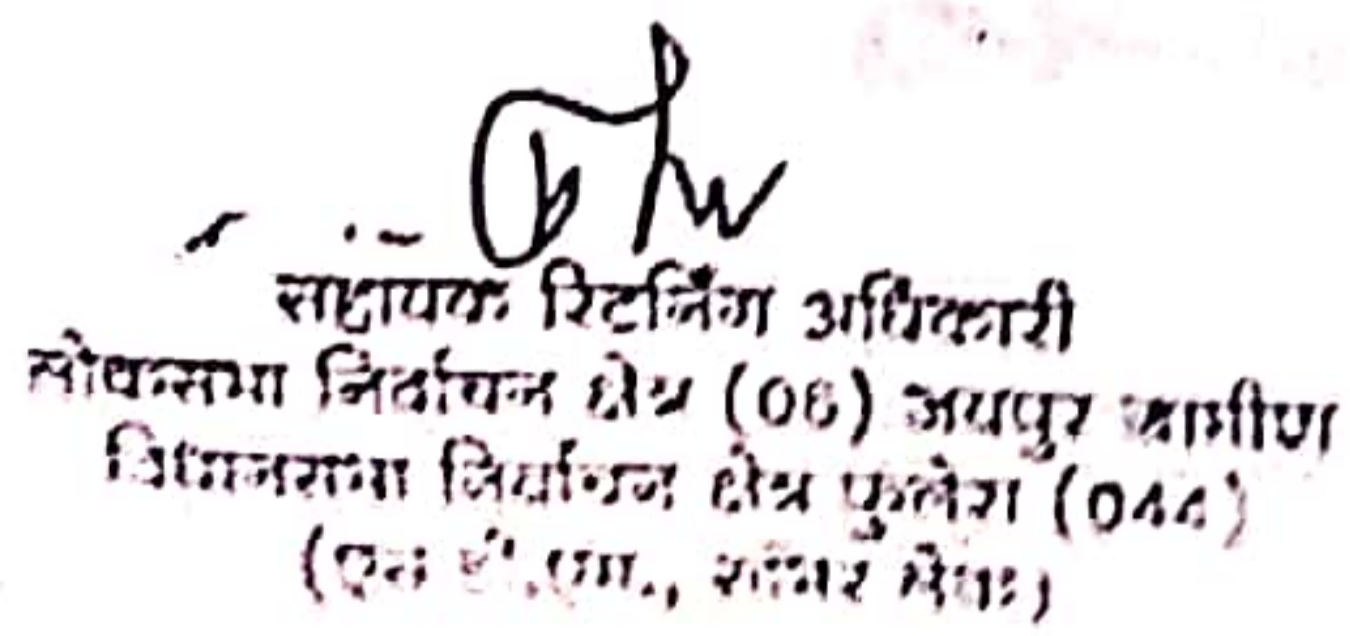 सहायक रिटर्निंग अधिकारी
लोकसभा निर्वाचन क्षेत्र (06) जयपुर ग्रामीण
विधानसभा निर्वाचन क्षेत्र फुलेरा (044)
(एस.डी.एम., सांभर लेक)